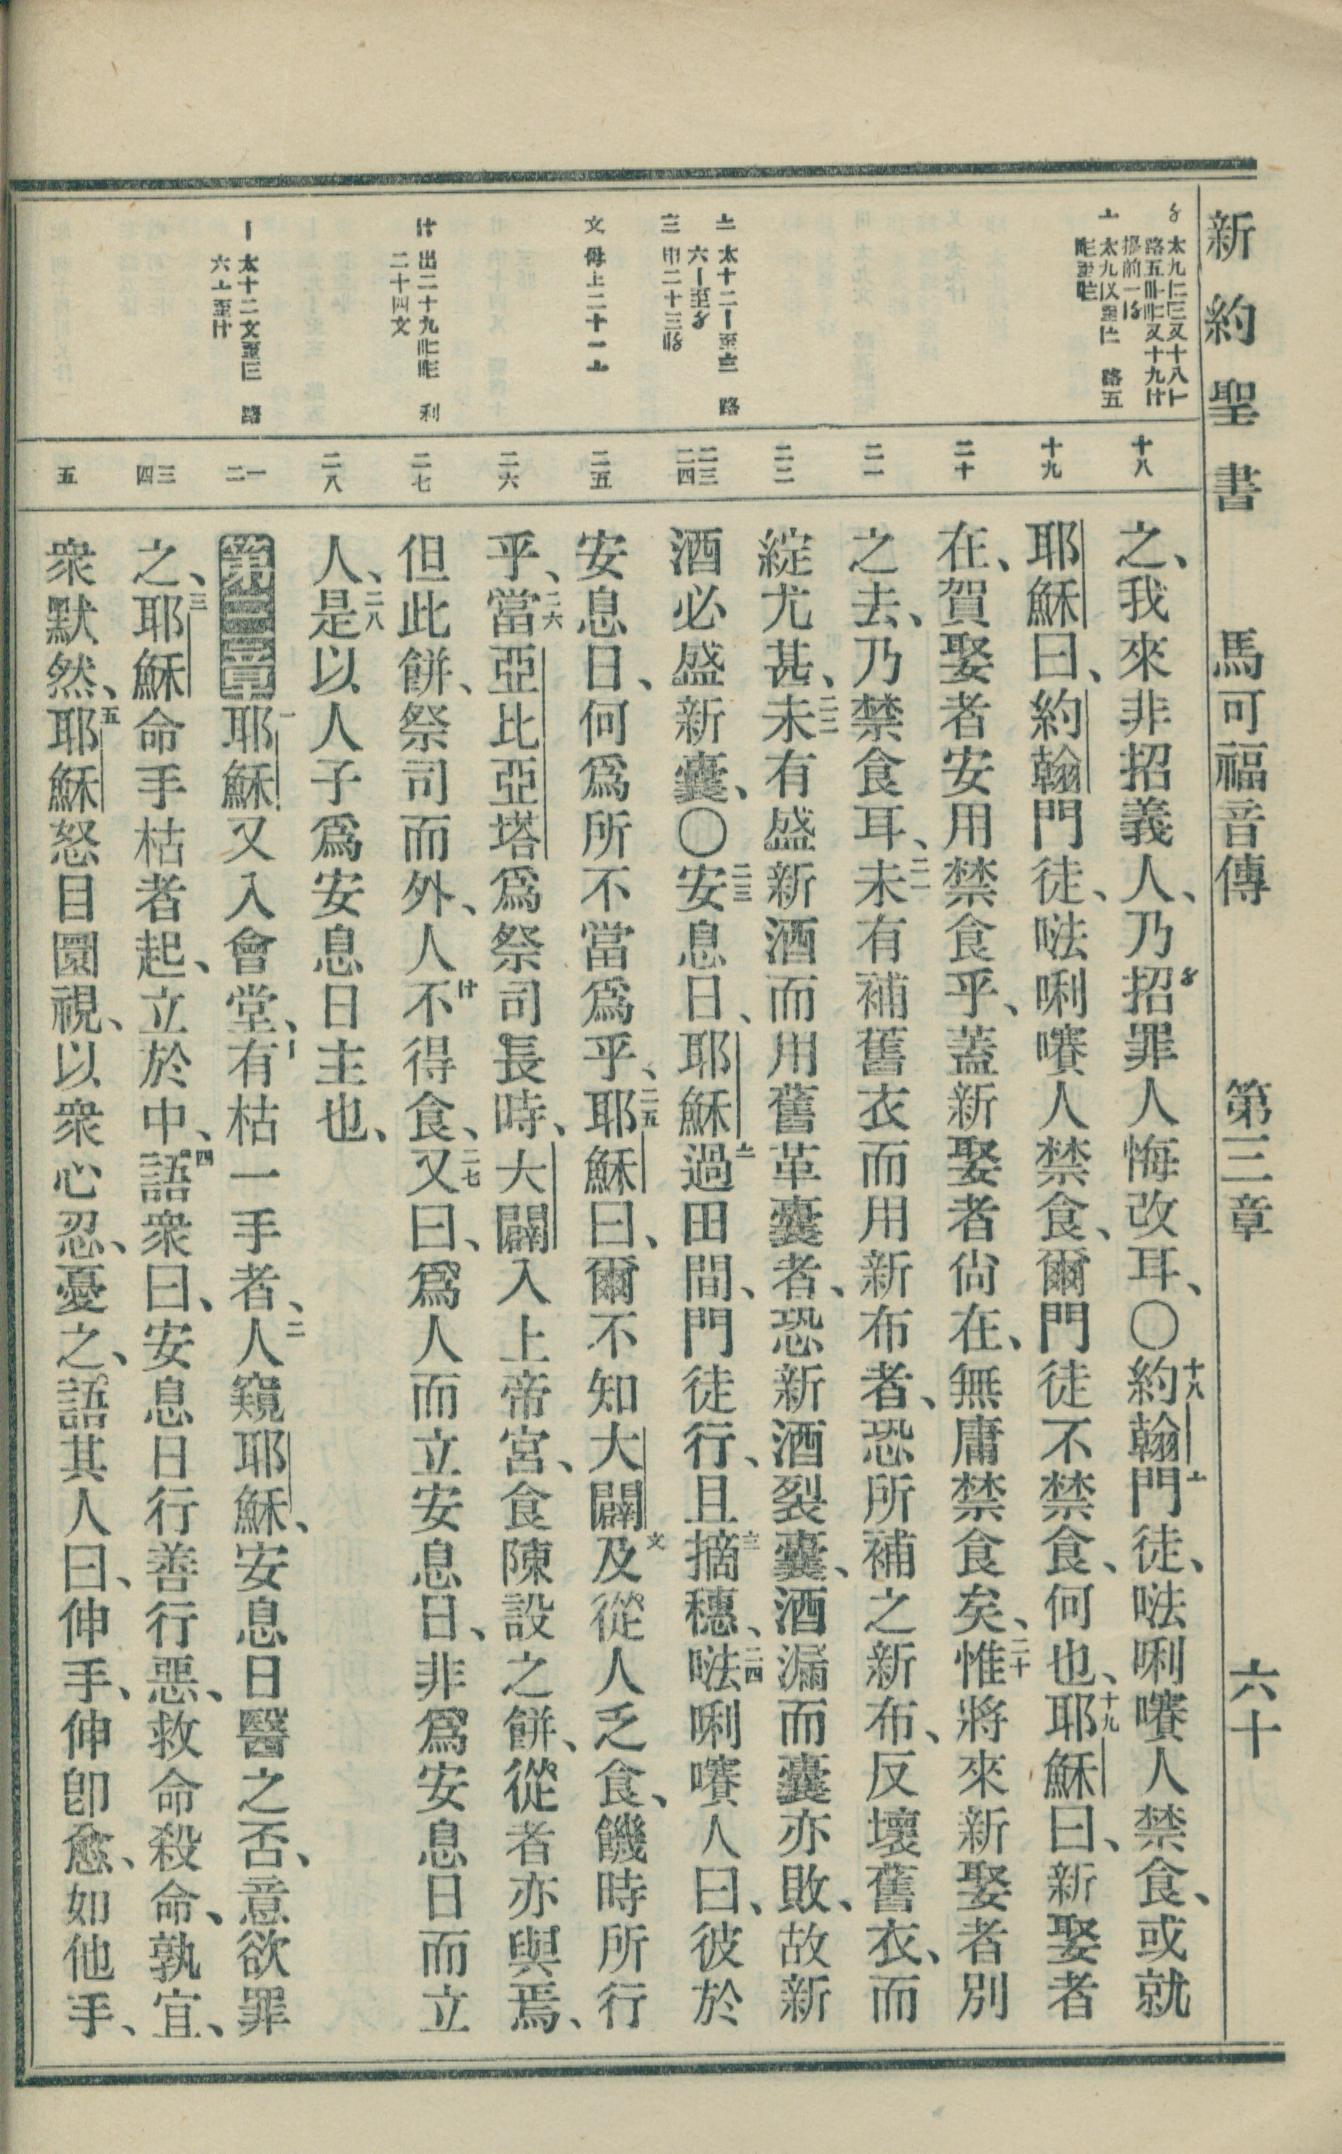 新約聖書 馬可福音傳 第三章 六十
十八
十九
二十
二一
二二
二三 二四
二五
二六
二七
二八
一 二
三 四
五
之、我來非招義人、乃招罪人悔改耳、〇十八約翰門徒、𠵽唎㘔人禁食、或就
耶穌曰、約翰門徒、𠵽唎㘔人禁食、爾門徒不禁食、何也、十九耶穌曰、新娶者
在、賀娶者安用禁食乎、蓋新娶者尙在、無庸禁食矣、二十惟將來新娶者別
之去、乃禁食耳、二一未有補舊衣而用新布者、恐所補之新布、反壞舊衣、而
綻尤甚、二二未有盛新酒而用舊革囊者、恐新酒裂囊、酒漏而囊亦敗、故新
酒必盛新囊、〇二三安息日、耶穌過田間、門徒行、且摘穗、二四𠵽唎㘔人曰、彼於
安息日、何爲所不當爲乎、二五耶穌曰、爾不知大闢及從人乏食、饑時所行
乎、二六當亞比亞塔爲祭司長時、大闢入上帝宮、食陳設之餅、從者亦與焉、
但此餅、祭司而外、人不得食、二七又曰、爲人而立安息日、非爲安息日而立
人、二八是以人子爲安息日主也、
第三章一耶穌又入會堂、有枯一手者、二人窺耶穌、安息日醫之否、意欲罪
之、三耶穌命手枯者起、立於中、四語衆曰、安息日行善行惡、救命殺命、孰宜、
衆默然、五耶穌怒目圜視、以衆心忍、憂之、語其人曰、伸手、伸卽愈、如他手、